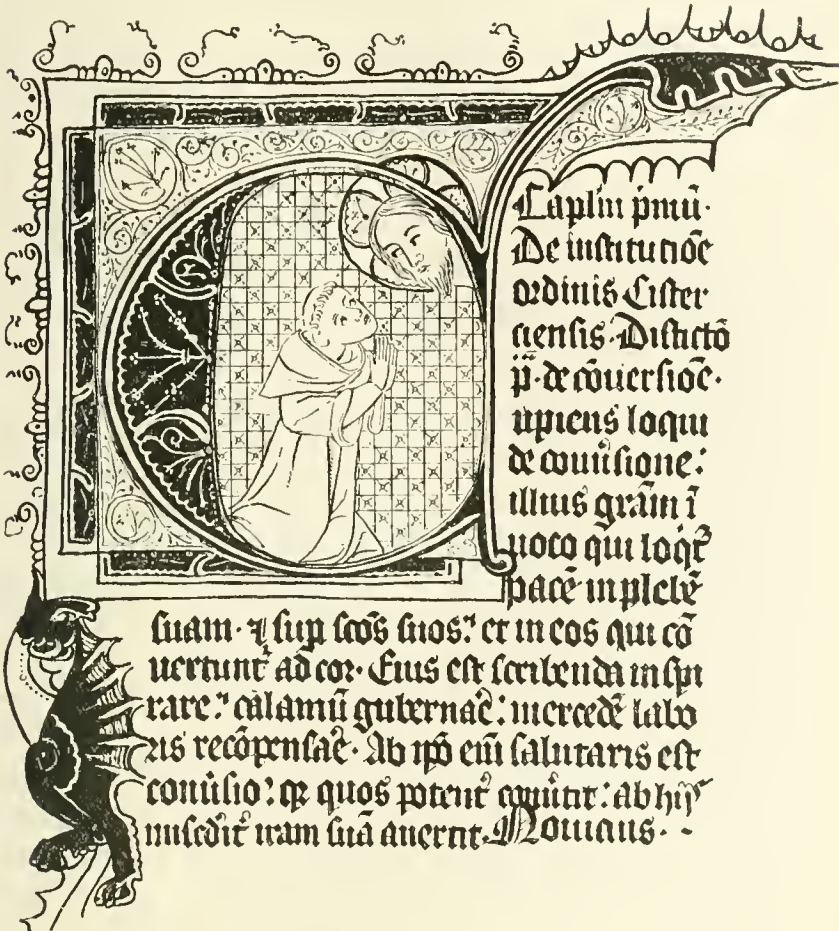 Caplm pmū·
De institutiōe
ordinis Cister
ciensis· Distictō
p̄· de cōuersiōe·
upiens loqui
de conūsione:
illius grām ī
uoco qui loqt̄
pacē in plebē
suam· ⁊ sup scōs suos: et in eos qui cō
uertunt̄ ad cor· Eius est scribenda inspi
rare: calamū gubernāe: mercedē labo
ris recōpensāe· Ab ipō eīī salutaris est
conūsio: qꝛ quos potent̄ conūtit: ab hijs
misēdit̄ iram suā auertit· Nouicius·